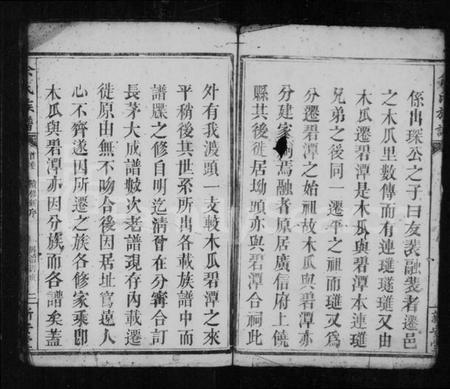 係出琛公之子曰友裴融裴者遷邑
之木瓜里數傳而有連璡璡又由
木瓜遷碧潭是木瓜與碧潭本連璡
兄弟之後同一遷平之祖而璡又爲
分遷碧潭之始祖故木瓜與碧潭亦
分建家 焉融者原居廣信府上饒
縣其後徙居坳頭亦與碧潭合祠此
外有我渡頭一支較木瓜碧潭之來
平稍後其世系所出各載族譜中而
譜牒之修自明迄清曾在分寧合訂
長茅大成譜數次老譜現存內載遷
徙原由無不吻合後因居址寫遠人
心不齊遂因所遷之族各修家乘卽
木瓜與碧潭亦因分族而各譜矣蓋